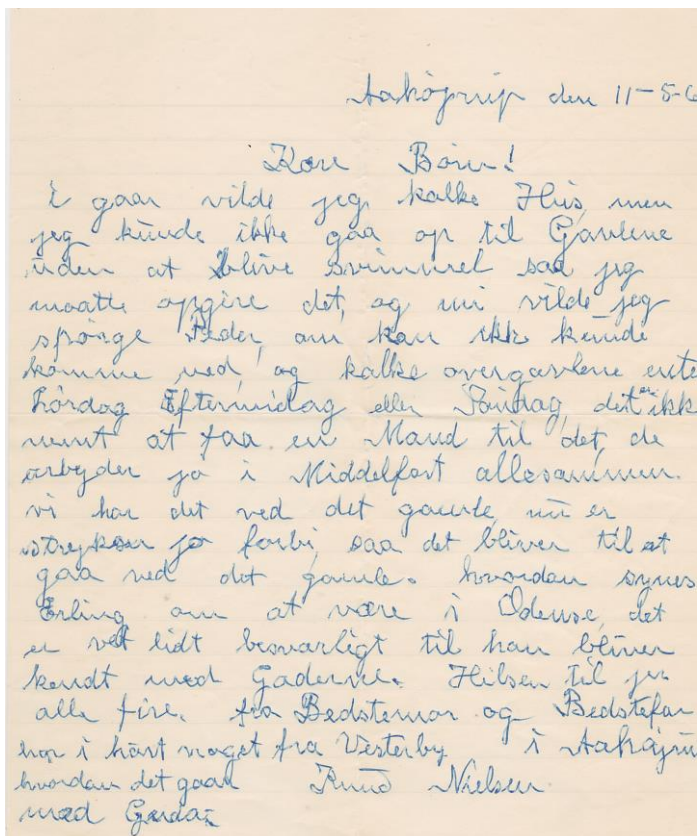 Aahøjrup den 11-5-6
Kære Børn!
I gaar vilde jeg kalke Hus, men
jeg kunde ikke gaa op til Gavlene
uden at blive svimmel saa jeg
maatte opgive det, og nu vilde jeg
spörge Peder, om han ikke kunde
komme ned, og kalke overgavlene ente
Lördag Eftermidag eller Söndag, det er ikk
nemt at faa en Mand til det, de
arbejder jo i Middelfart allesammen.
vi har det ved det gamle, nu er
strejken jo forbi, saa det bliver til at
gaa ved det gamle. hvordan synes
Erling om at være i Odense, det
er vel lidt besværligt til han bliver
kendt med Gaderne. Hilsen til jer
alle fire. fra Bedstemor og Bedstefar
har i hört noget fra Vesterby i Aahøjru
hvordan det gaar Knud Nielsen
med Gerda